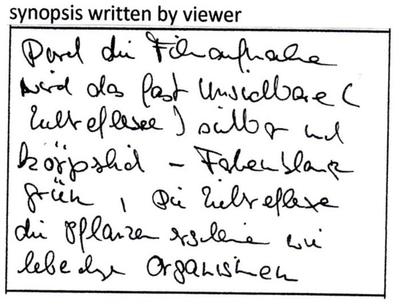 synopsis written by viewer
Durch die Filmaufnahme
wird das fast Unsichtbare (
Lichtreflexe) sichtbar und
körperlich - Farben
grün, Die Lichtreflexe
die Pflanzen erscheinen wie
lebendige Organismen